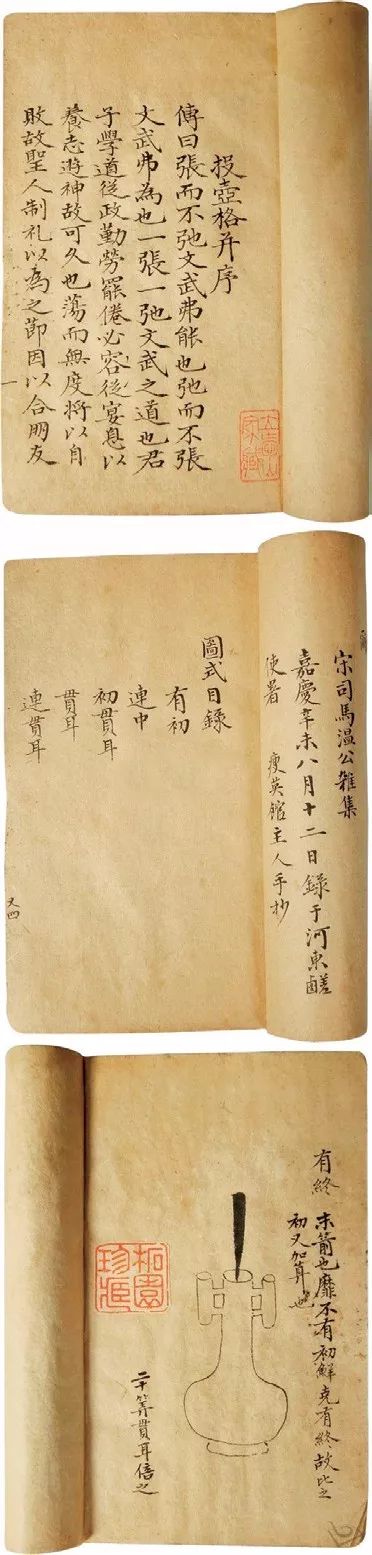 投壺格并序
傳曰張而不弛文武弗能也弛而不張
文武弗為也一張一弛文武之道也君
子學道從政勤勞罷倦必容從宴息以
養志遊神故可久也蕩而無度將以自
敗故聖人制礼以為之節因以合朋友
宋司馬溫公雜集
嘉慶辛未八月十二日錄于河東鹺
使署 瘦英館主人手抄
圖式目錄
有初
連中
初貫耳
貫耳
連貫耳
又四
有終 末箭也靡不有初鮮克有終故比之
初又加算也
二十筭貫耳倍之
柘園
珍藏